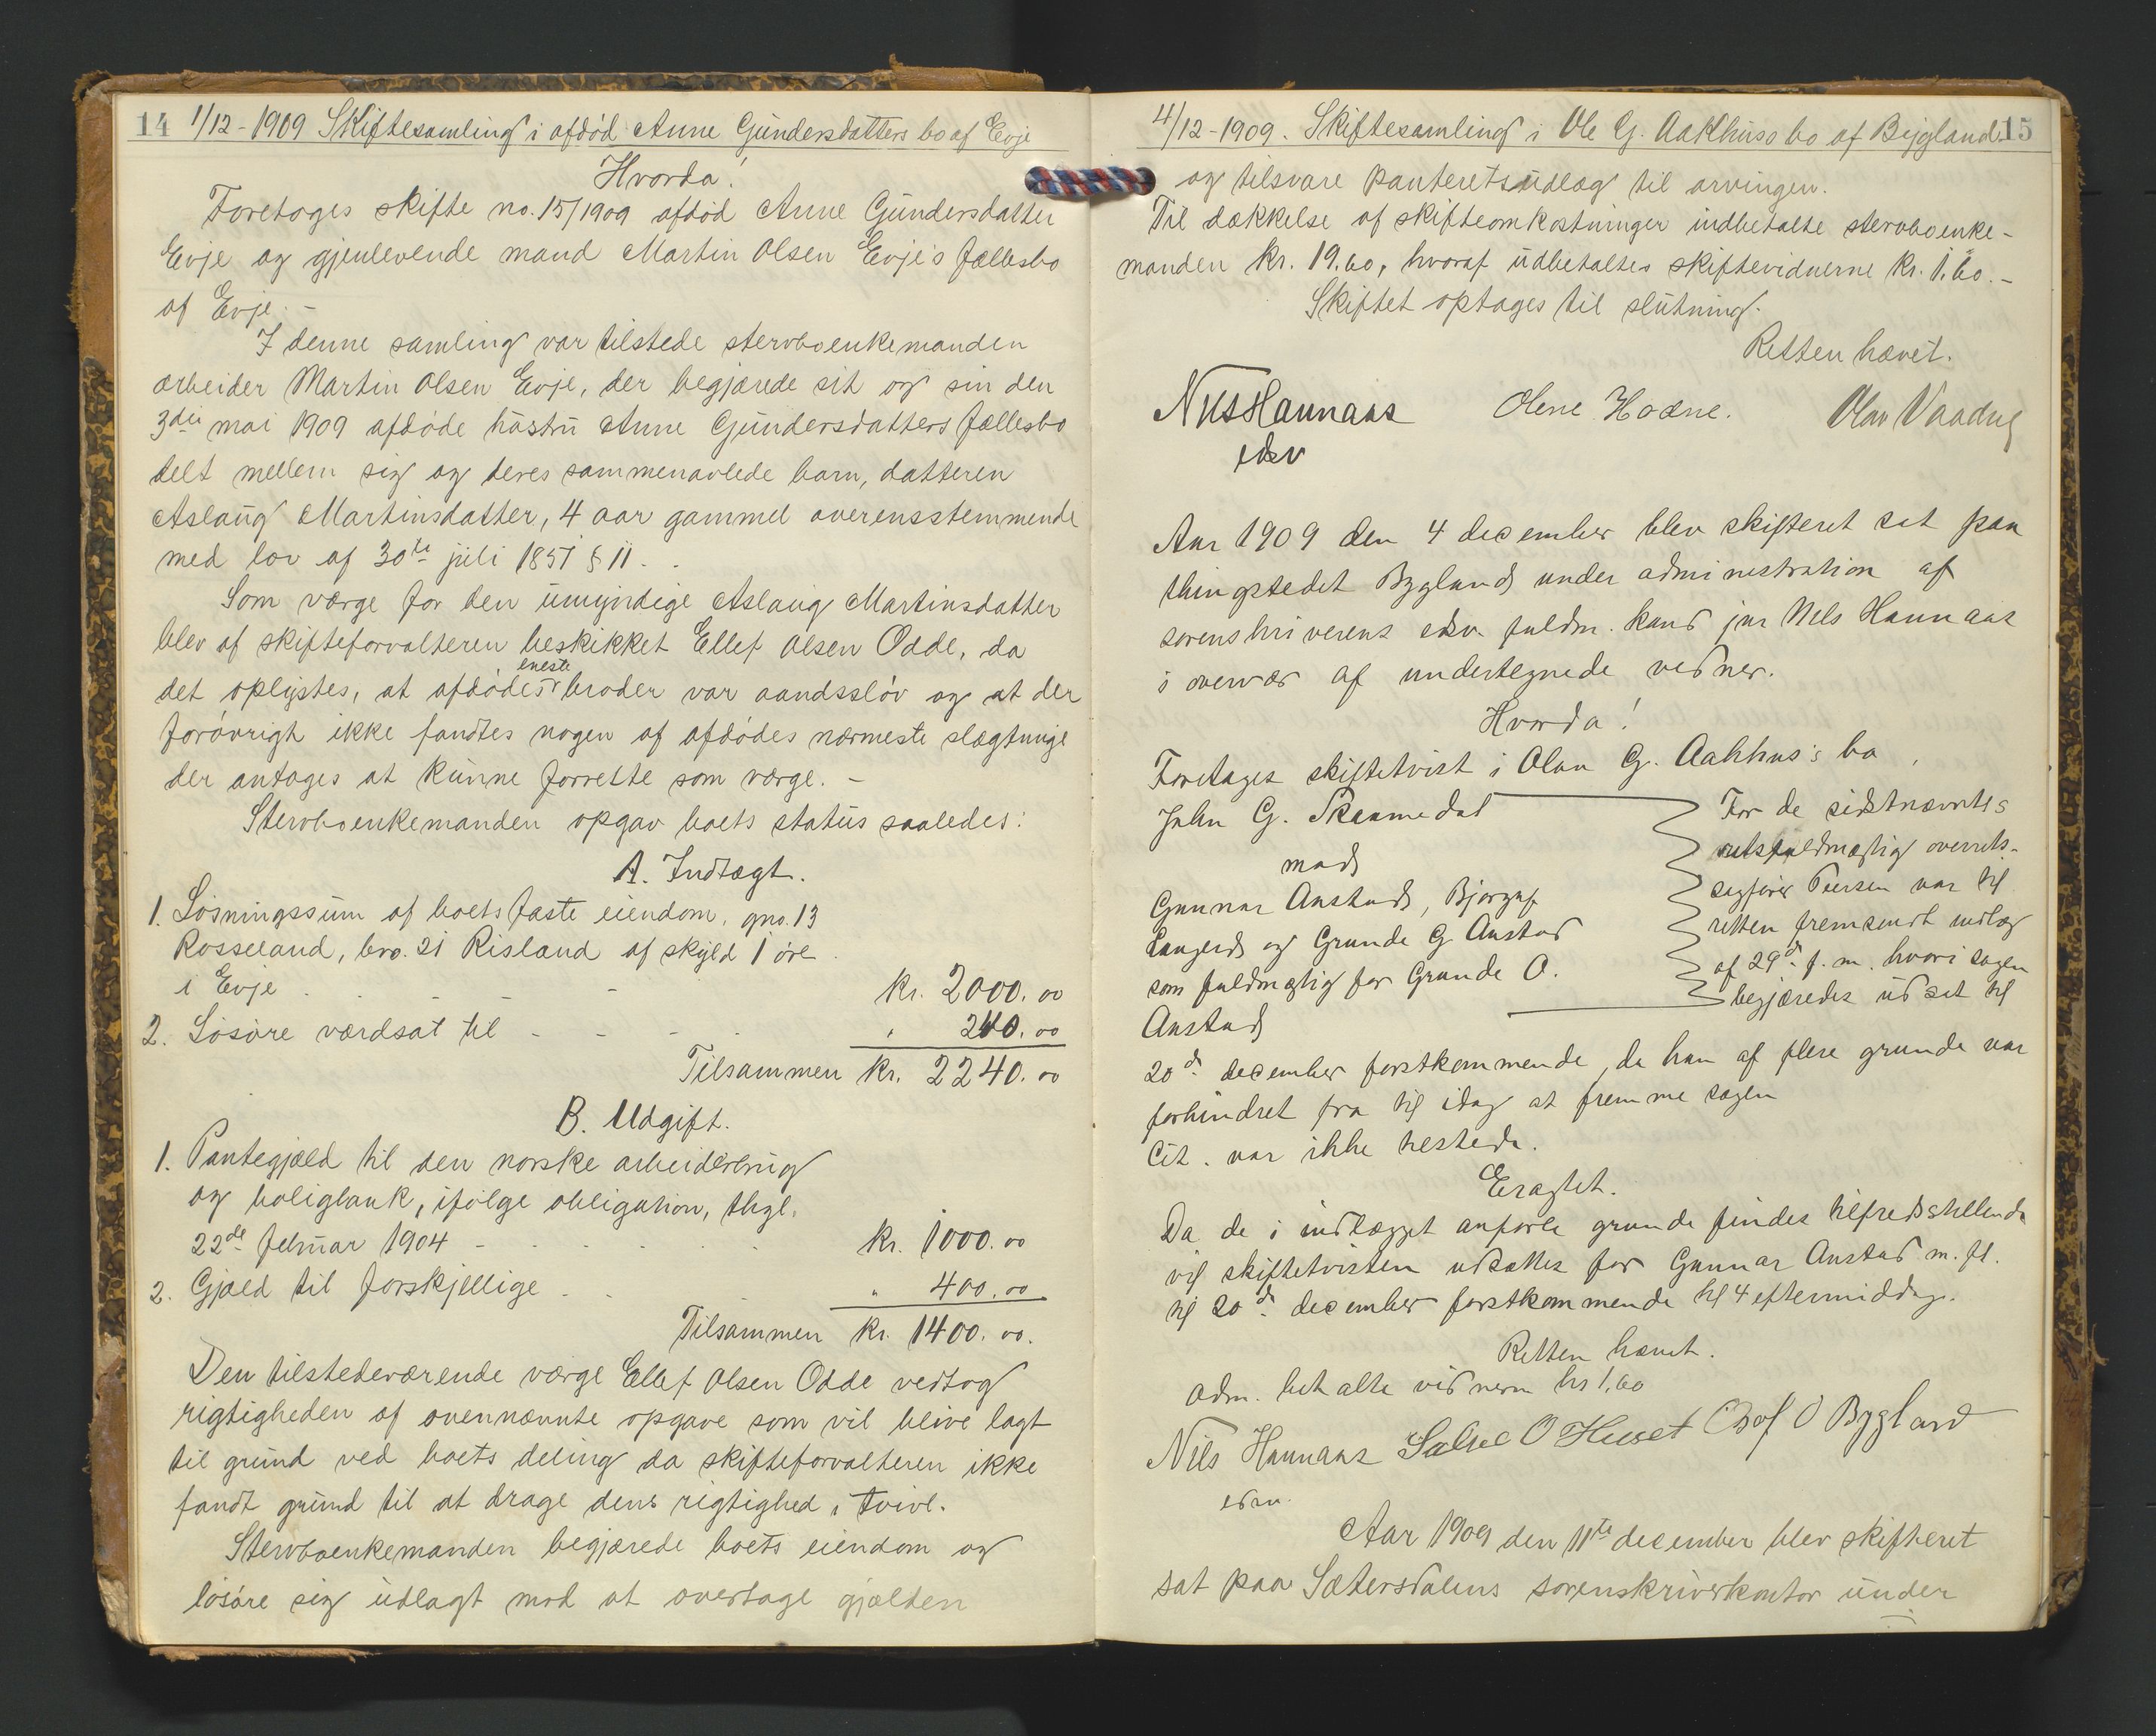 14 1/12-1909 Skiftesamling i afdød Anne Gundersdatters bo af Evje
Hvorda!
Foretoges skifte no. 15/1909 afdød Anne Gundersdatter
Evje og gjenlevende mand Martin Olsen Evje's fællesbo
af Evje.-
I denne samling var tilstede stervboenkemanden
arbeider Martin Olsen Evje, der begjærede sit og sin den
3die mai 1909 afdøde hustru Anne Gundersdatters fællesbo
delt mellem sig og deres sammenavlede barn, datteren
Aslaug Martinsdatter, 4 aar gammel overensstemmende
med lov af 30te juli 1851 § 11.
Som værge for den umyndige Aslaug Martinsdatter
blev af skifteforvalteren beskikket Ellef Olsen Odde, da
det oplystes, at afdødes eneste broder var aandssløv og at der
forøvrigt ikke fandtes nogen af afdødes nærmeste slægtninge
der antages at kunne forrette som værge.-
Stervboenkemanden opgav boets status saaledes:
A. Indtægt.
1. Løsningssum af boets faste eiendom, gno. 13
Rosseland, bro. 21 Risland af skyld 1 øre
i Evje - - - kr. 2000.00
2. Løsøre værdsat til - - - " 240.00
Tilsammen kr. 2240.00
B. Udgift.
1. Pantegjæld til den norske arbeiderbrug
og boligbank, ifølge obligation, thgl.
22de februar 1904 - - - kr. 1000.00
2. Gjæld til forskjellige - - - " 400.00
Tilsammen kr. 1400.00.
Den tilstedeværende værge Ellef Olsen Odde vedtog
rigtigheden af ovennævnte opgave som vil blive lagt
til grund ved boets deling da skifteforvalteren ikke
fandt grund til at drage dens rigtighed i tvivl.
Stervboenkemanden begjærede boets eiendom og
løsøre sig udlagt mod at overtage gjælden
4/12-1909. Skiftesamling i Ole G. Aakhuss bo af Bygland 15
og tilsvare panteretsudlæg til arvingen.
Til dækkelse af skifteomkostninger indbetalte stervboenke-
manden kr. 19.60, hvoraf udbetaltes skiftevidnerne kr. 1.60.-
Skiftet optages til slutning.
Retten hævet.
Nils Hannaas Olene Hodne. Olav Vaadne
edsv
Aar 1909 den 4 december blev skifteret sat paa
thingstedet Bygland under administration af
sorenskriverens edsv. fuldm. kand jur Nils Hannaas
i overvær af undertegnede vidner.
Hvorda!
Foretages skiftetvist i Olav G. Aakhus's bo
John G. Skaamedal
mod
Gunnar Austad, Bjørgulf
Langeid og Grunde G Austad
som fuldmægtig for Grunde O.
Austad
For de sidstnævntes
retsfuldmægtig overrets-
sagfører Peersen var til
retten fremsendt indlæg
af 29de f. m. hvori sagen
begjæredes udsat til
20de december førstkommende, da han af flere grunde var
forhindret fra til idag at fremme sagen
Cit. var ikke tilstede.
Eragtet.
Da de i indlægget anførte grunde findes tilfredsstillende
vil skiftetvisten udsættes for Gunnar Austad m. fl.
til 20de december førstkommende kl 4 eftermiddag.
Retten hævet.
Adm. betalte vidnerne kr 1,60
Nils Hannaas Salve O Huset Olof O Bygland
edsv.
Aar 1909 den 11te december blev skifteret
sat paa Sætersdalens sorenskriverkontor under